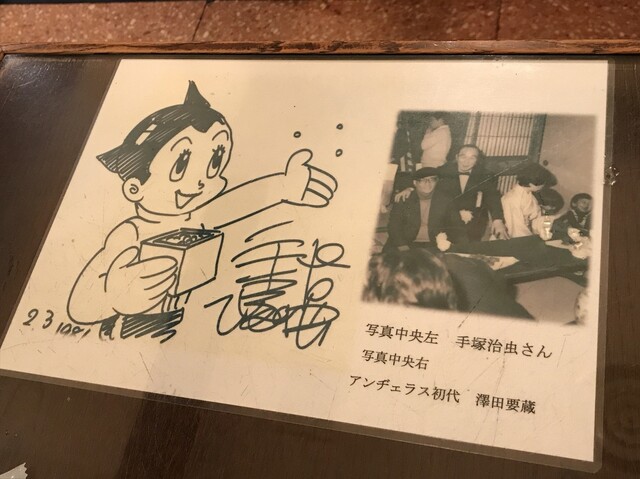 手塚
治虫
2.3 1981
写真中央左 手塚治虫さん
写真中央右
アンヂェラス初代 澤田要蔵